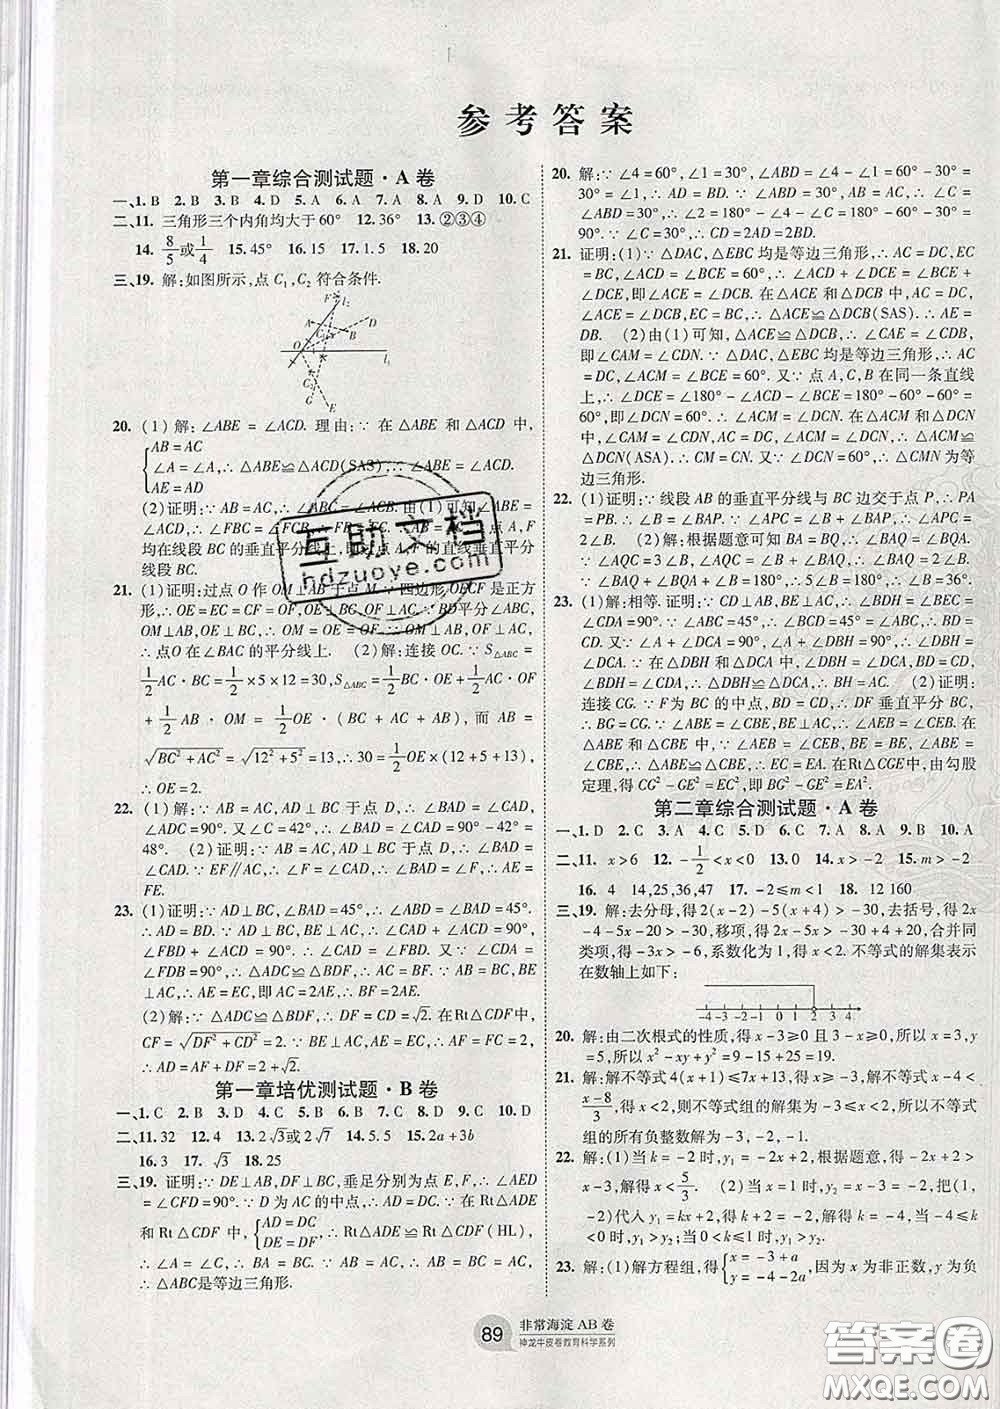 参考答案
第一章综合测试题·A 卷
一、1. B 2. B 3. B 4. D 5. A 6. D 7. D 8. A 9. D 10. C
二、11. 三角形三个内角均大于60° 12. 36° 13. ②③④
14. 8/5或1/4 15. 45° 16. 15 17. 1.5 18. 20
三、19. 解:如图所示,点 C₁,C₂ 符合条件.
F l₂
A D
C₁ B
O
l₁
C₂
G E
20. (1) 解: ∠ABE = ∠ACD. 理由:∵ 在 △ABE 和 △ACD 中,
AB = AC
∠A = ∠A,∴ △ABE≌△ACD(SAS),∴ ∠ABE = ∠ACD.
AE = AD
(2)证明:∵ AB = AC,∴ ∠ABC = ∠ACB. 由(1)可知∠ABE =
∠ACD,∴ ∠FBC = ∠FCB,∴ FB = FC. ∵ AB = AC,∴ 点 A,F
均在线段 BC 的垂直平分线上,即过点 A,F 的直线垂直平分
线段 BC.
21. (1)证明:过点 O 作 OM⊥AB 于点 M. ∵ 四边形 OECF 是正方
形,∴ OE = EC = CF = OF,OE⊥BC,OF⊥AC. ∵ BD平分∠ABC,
OM⊥AB,OE⊥BC,∴ OM = OE = OF. ∵ OM⊥AB,OF⊥AC,
∴ 点O 在∠BAC 的平分线上. (2)解:连接 OC. ∵ S△ABC =
1/2 AC·BC = 1/2 × 5 × 12 = 30,S△ABC = 1/2 AC·OF + 1/2 BC·OE
+ 1/2 AB · OM = 1/2 OE · (BC + AC + AB), 而 AB =
√(BC² + AC²) = √(12² + 5²) = 13,∴ 30 = 1/2 OE × (12 + 5 + 13),
∴ OE = 2.
22. (1)解:∵ AB = AC,AD⊥BC 于点 D,∴ ∠BAD = ∠CAD,
∠ADC = 90°. 又 ∠C = 42°,∴ ∠BAD = ∠CAD = 90° - 42° =
48°. (2)证明:∵ AB = AC,AD⊥BC 于点 D,∴ ∠BAD =
∠CAD. ∵ EF∥AC,∴ ∠F = ∠CAD,∴ ∠BAD = ∠F,∴ AE =
FE.
23. (1)证明:∵ AD⊥BC,∠BAD = 45°,∴ ∠ABD = ∠BAD = 45°,
∴ AD = BD. ∵ AD⊥BC,BE⊥AC,∴ ∠CAD + ∠ACD = 90°,
∠FBD + ∠ACD = 90°,∴ ∠CAD = ∠FBD. 又 ∵ ∠CDA =
∠FDB = 90°,∴ △ADC≌△BDF,∴ AC = BF. ∵ AB = BC,
BE⊥AC,∴ AE = EC,即 AC = 2AE,∴ BF = 2AE.
(2)解:∵ △ADC≌△BDF,∴ DF = CD = √2. 在Rt△CDF中,
CF = √(DF² + CD²) = 2. ∵ BE⊥AC,AE = EC,∴ AF = CF = 2,
∴ AD = AF + DF = 2 + √2.
第一章培优测试题·B 卷
一、1. C 2. B 3. D 4. C 5. D 6. A 7. B 8. C 9. C 10. D
二、11. 32 12. 4 13. 2√3或2√7 14. 5.5 15. 2a + 3b
16. 3 17. √3 18. 25
三、19. 证明:∵ DE⊥AB,DF⊥BC,垂足分别为点 E,F,∴ ∠AED
= ∠CFD = 90°. ∵ D 为 AC 的中点,∴ AD = DC. 在 Rt△ADE
和 Rt△CDF 中, AD = DC
DE = DF ,∴ Rt△ADE≌Rt△CDF (HL),
∴ ∠A = ∠C,∴ BA = BC. ∵ AB = AC,∴ AB = BC = AC,
∴ △ABC是等边三角形.
20. 解:∵ ∠4 = 60°,∠1 = 30°,∴ ∠ABD = ∠4 - ∠1 = 60° - 30° =
30° = ∠1,∴ AD = BD. ∵ AB = AC,∴ ∠C =
∠ABD = 30°,∴ ∠2 = 180° - ∠4 - ∠C = 180° - 60° - 30° =
90°. ∵ ∠C = 30°,∴ CD = 2AD = 2BD.
21. 证明:(1)∵ △DAC,△EBC 均是等边三角形,∴ AC = DC,EC
= BC,∠ACD = ∠BCE = 60°,∴ ∠ACD + ∠DCE = ∠BCE +
∠DCE,即∠ACE = ∠DCB. 在△ACE 和△DCB 中,AC = DC,
∠ACE = ∠DCB, EC = BC,∴ △ACE≌△DCB (SAS),∴ AE =
DB. (2)由(1)可知,△ACE≌△DCB,∴ ∠CAE = ∠CDB,
即∠CAM = ∠CDN. ∵ △DAC,△EBC 均是等边三角形,∴ AC
= DC,∠ACM = ∠BCE = 60°. 又∵ 点 A,C,B 在同一条直线
上,∴ ∠DCE = 180° - ∠ACD - ∠BCE = 180° - 60° - 60° =
60°,即∠DCN = 60°,∴ ∠ACM = ∠DCN. 在△ACM 和△DCN
中,∠CAM = ∠CDN,AC = DC,∠ACM = ∠DCN,∴ △ACM≌
△DCN(ASA),∴ CM = CN. 又∵ ∠DCN = 60°,∴ △CMN 为等
边三角形.
22. (1)证明:∵ 线段 AB 的垂直平分线与 BC 边交于点 P,∴ PA
= PB,∴ ∠B = ∠BAP. ∵ ∠APC = ∠B + ∠BAP,∴ ∠APC =
2∠B. (2)解:根据题意可知 BA = BQ,∴ ∠BAQ = ∠BQA.
∵ ∠AQC = 3∠B,∠AQC = ∠B + ∠BAQ,∴ ∠BQA = 2∠B.
∵ ∠BAQ + ∠BQA + ∠B = 180°,∴ 5∠B = 180°,∴ ∠B = 36°.
23. (1)解:相等. 证明:∵ CD⊥AB,BE⊥AC,∴ ∠BDH = ∠BEC =
∠CDA = 90°. ∵ ∠ABC = 45°,∴ ∠BCD = 45° = ∠ABC,∴ DB =
CD. 又∵ ∠A + ∠DCA = 90°,∠A + ∠DBH = 90°,∴ ∠DBH =
∠DCA. ∵ 在 △DBH 和 △DCA 中,∠DBH = ∠DCA,BD = CD,
∠BDH = ∠CDA,∴ △DBH≌△DCA,∴ BH = AC. (2)证明:
连接 CG. ∵ F为 BC 的中点,BD = CD,∴ DF 垂直平分 BC,
∴ BG = CG. ∵ ∠ABE = ∠CBE,BE⊥AC,∴ ∠AEB = ∠CEB. 在
△ABE和△CBE 中,∵ ∠AEB = ∠CEB, BE = BE, ∠ABE =
∠CBE,∴ △ABE≌△CBE,∴ EC = EA. 在Rt△CGE中,由勾股
定理,得 CG² - GE² = CE²,即BG² - GE² = EA².
第二章综合测试题·A 卷
一、1. D 2. C 3. A 4. C 5. D 6. C 7. A 8. A 9. B 10. A
二、11. x > 6 12. -1/2 < x < 0 13. 0 14. x > -2 15. m > -2
16. 4 14,25,36,47 17. -2 ≤ m < 1 18. 12 160
三、19. 解:去分母,得2(x - 2) - 5(x + 4) > -30,去括号,得2x
-4 -5x -20 > -30,移项,得2x - 5x > -30 + 4 + 20,合并同
类项,得 -3x > -6,系数化为1,得 x < 2. 不等式的解集表示
在数轴上如下:
-4 -3 -2 -1 0 1 2 3 4
20. 解:由二次根式的性质,得 x - 3≥0 且 3 - x≥0,所以 x = 3,y
= 5,所以 x² - xy + y² = 9 - 15 + 25 = 19.
21. 解:解不等式4(x + 1)≤7x + 13,得 x≥ -3. 解不等式x - 4 <
(x - 8)/3,得 x < 2,则不等式组的解集为 -3≤x < 2,所以不等式
组的所有负整数解为 -3, -2, -1.
22. 解:(1)当 k = -2 时,y₁ = -2x + 2,根据题意,得 -2x + 2 >
x - 3,解得 x < 5/3. (2)当 x = 1时,y₂ = x - 3 = -2,把(1,
-2)代入 y₁ = kx + 2,得k + 2 = -2,解得k = -4. 当 -4≤k
< 0时,y₁ > y₂;当0 < k≤1时,y₁ > y₂.
23. 解:(1)解方程组,得 x = -3 + a
y = -4 - 2a ,因为 x 为非正数,y 为负
互助文档
hdzuoye.com
89 非常海淀 AB 卷
神龙牛皮卷教育科学系列
答案圈
MXQE.COM